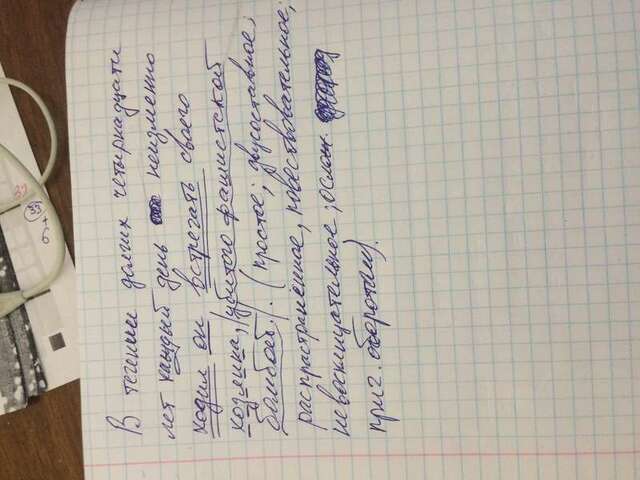 32
33
+ 6
В течении долгих четырнадцати
лет каждый день неизменно
ходил он встречать своего
хозяина, убитого фашистской
бомбой. (простое; двусоставное;
распрастранённое, повествовательное;
невосклицательное; ослож.
прич. оборотом).